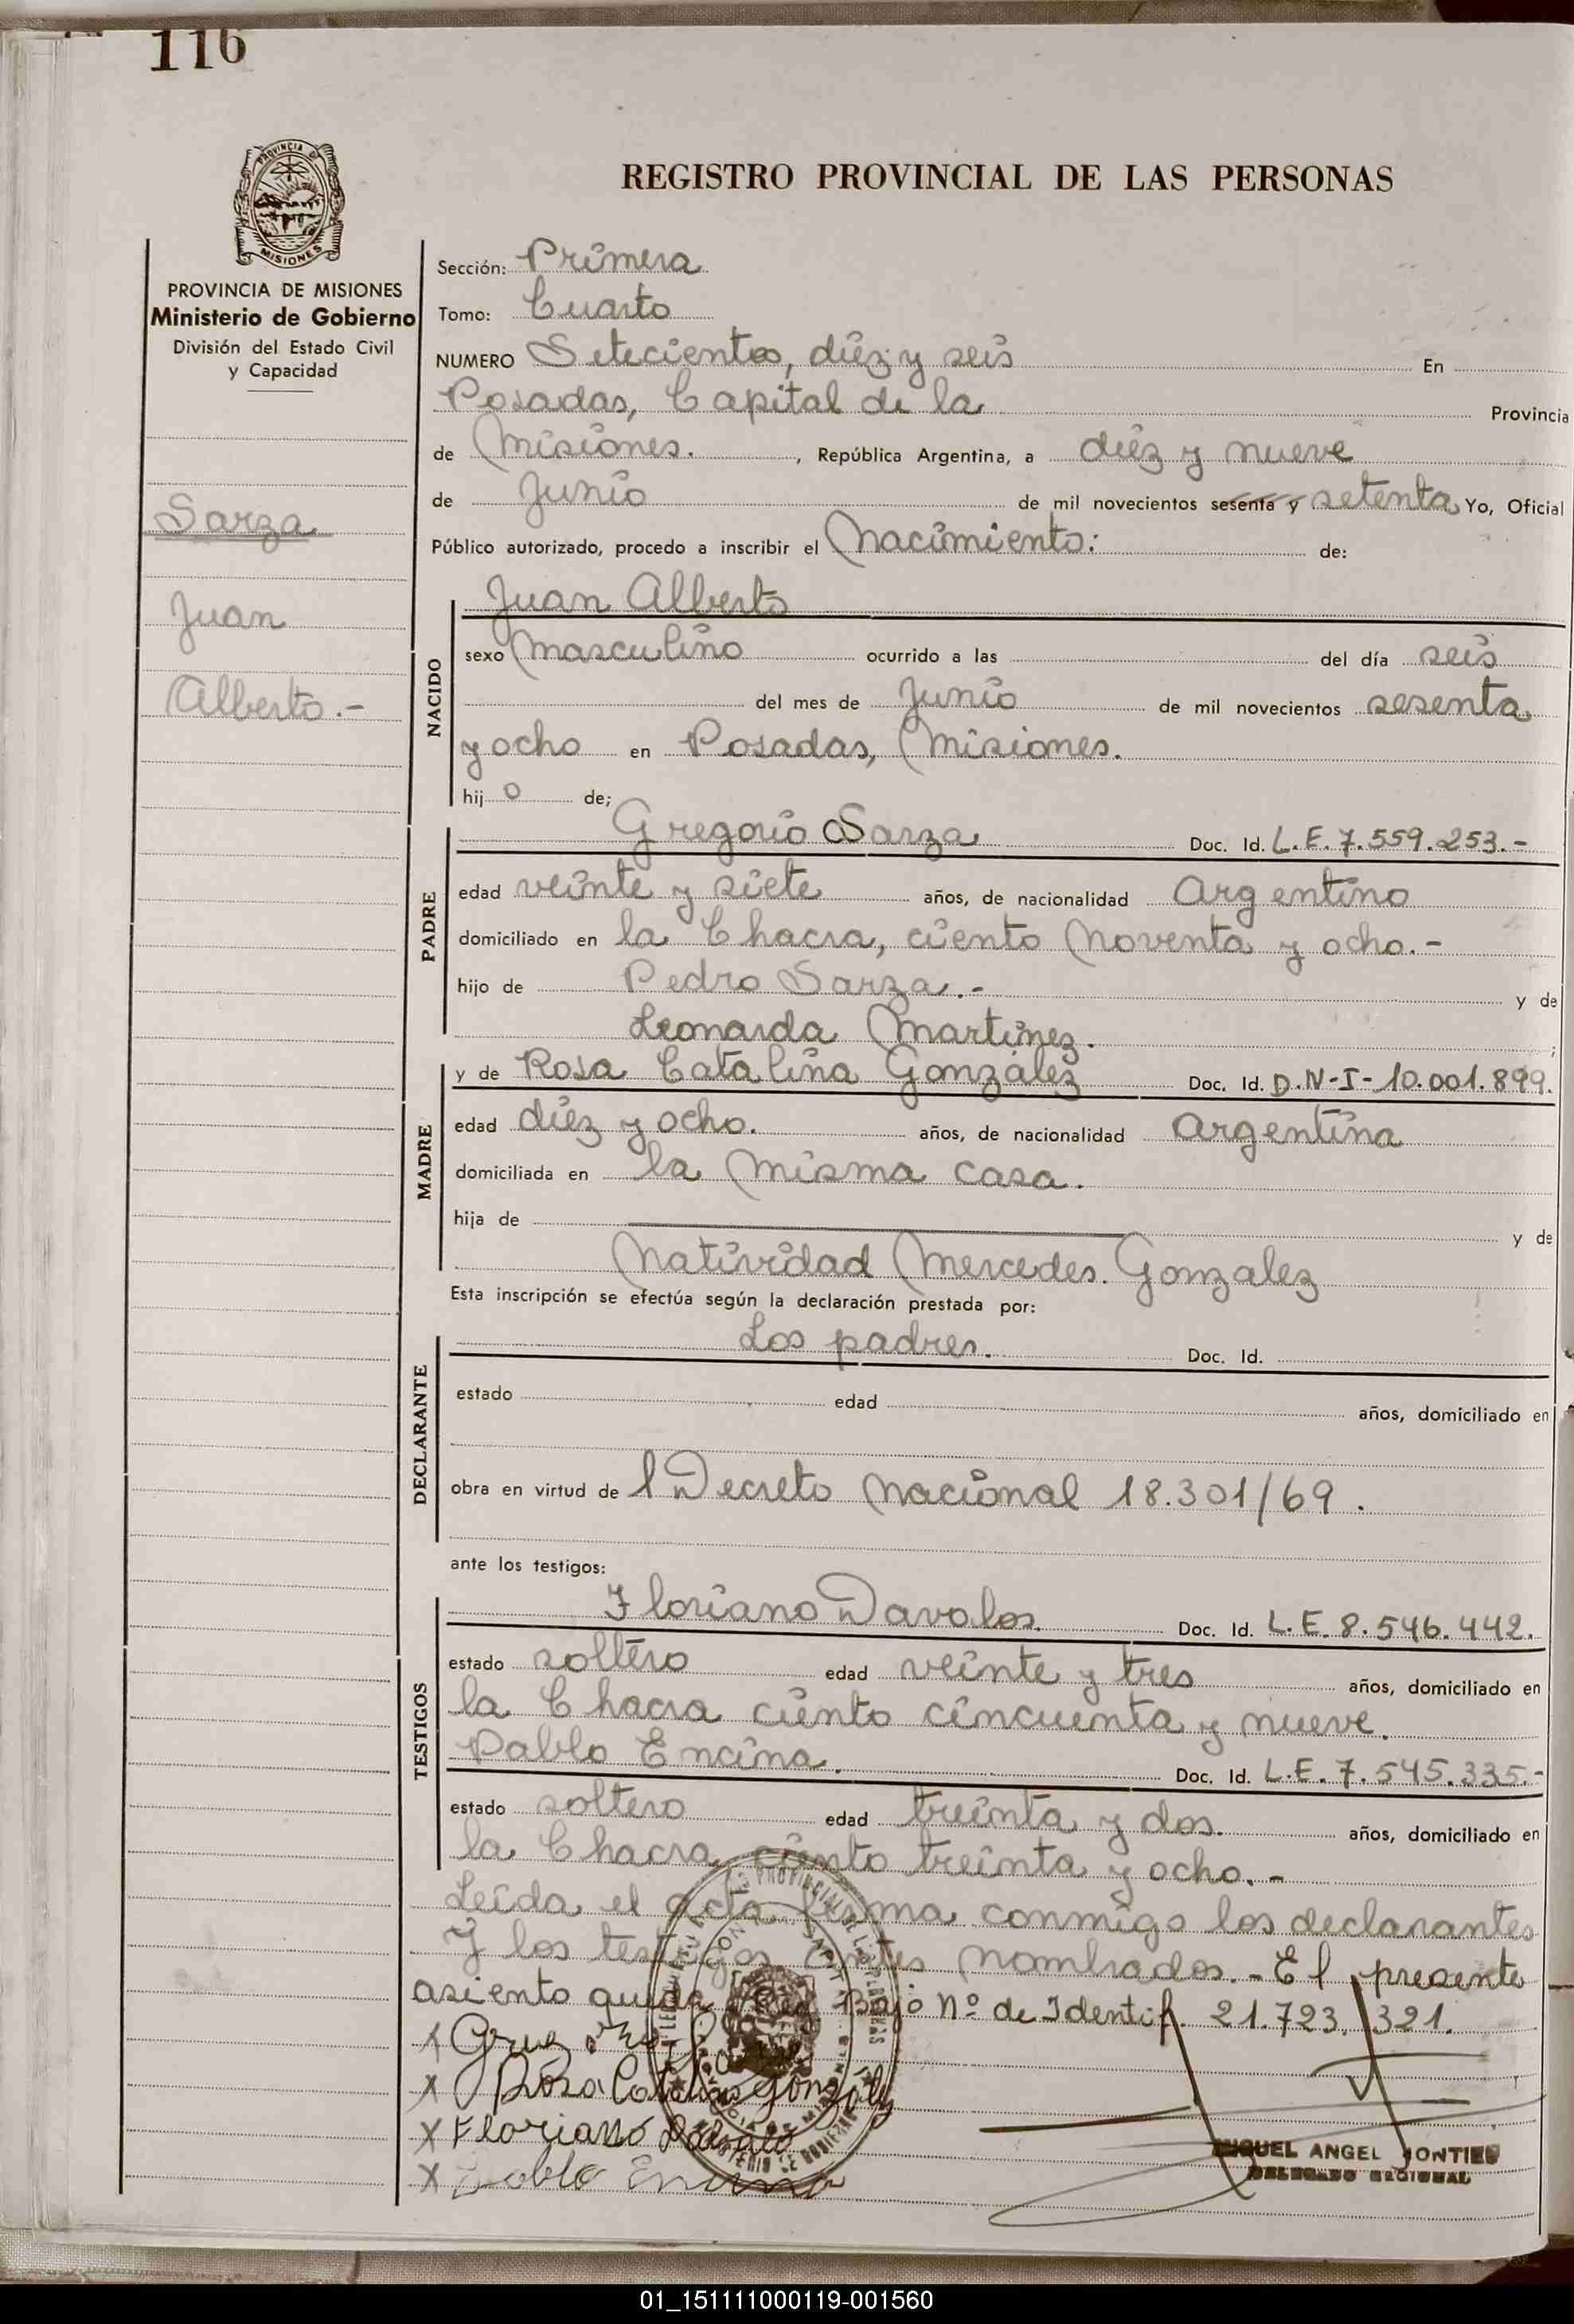 116
REGISTRO PROVINCIAL DE LAS PERSONAS
PROVINCIA DE MISIONES
Ministerio de Gobierno
División del Estado Civil
y Capacidad
Sarza
Juan
Alberto.-
Sección: Primera
Tomo: Cuarto
NUMERO Setecientos, diez y seis En
Posadas, Capital de la Provincia
de Misiones. , República Argentina, a diez y nueve
de Junio de mil novecientos sesenta y setenta Yo, Oficial
Público autorizado, procedo a inscribir el Nacimiento: de:
NACIDO
Juan Alberto
sexo Masculino ocurrido a las del día seis
del mes de Junio de mil novecientos sesenta
y ocho en Posadas, Misiones.
hij o de;
PADRE
Gregorio Sarza Doc. Id. L.E. 7.559.253.-
edad veinte y siete años, de nacionalidad Argentino
domiciliado en la Chacra, ciento Noventa y ocho.-
hijo de Pedro Sarza.- y de
Leonarda Martinez. ;
MADRE
y de Rosa Catalina González Doc. Id. D.N-I-10.001.899.
edad diez y ocho. años, de nacionalidad Argentina
domiciliada en la Misma casa.
hija de y de
Natividad Mercedes. Gonzalez
Esta inscripción se efectúa según la declaración prestada por:
DECLARANTE
Los padres. Doc. Id.
estado edad años, domiciliado en
obra en virtud de l Decreto Nacional 18.301/69.
ante los testigos:
TESTIGOS
Floriano Davalos. Doc. Id. L.E. 8.546.442.
estado soltero edad veinte y tres años, domiciliado en
la Chacra ciento cincuenta y nueve.
Pablo Encina. Doc. Id. L.E. 7.545.335.-
estado soltero edad treinta y dos. años, domiciliado en
la Chacra ciento treinta y ocho.-
Leida el acta firma conmigo los declarantes
Y los testigos antes Nombrados.- El presente
asiento queda Bajo Nº de Identif. 21.723.321.
X
X Rosa Catalina Gonzalez
X Floriano Dabalo
X Pablo Encina
MIGUEL ANGEL MONTIEL
DELEGADO REGIONAL
01_151111000119-001560